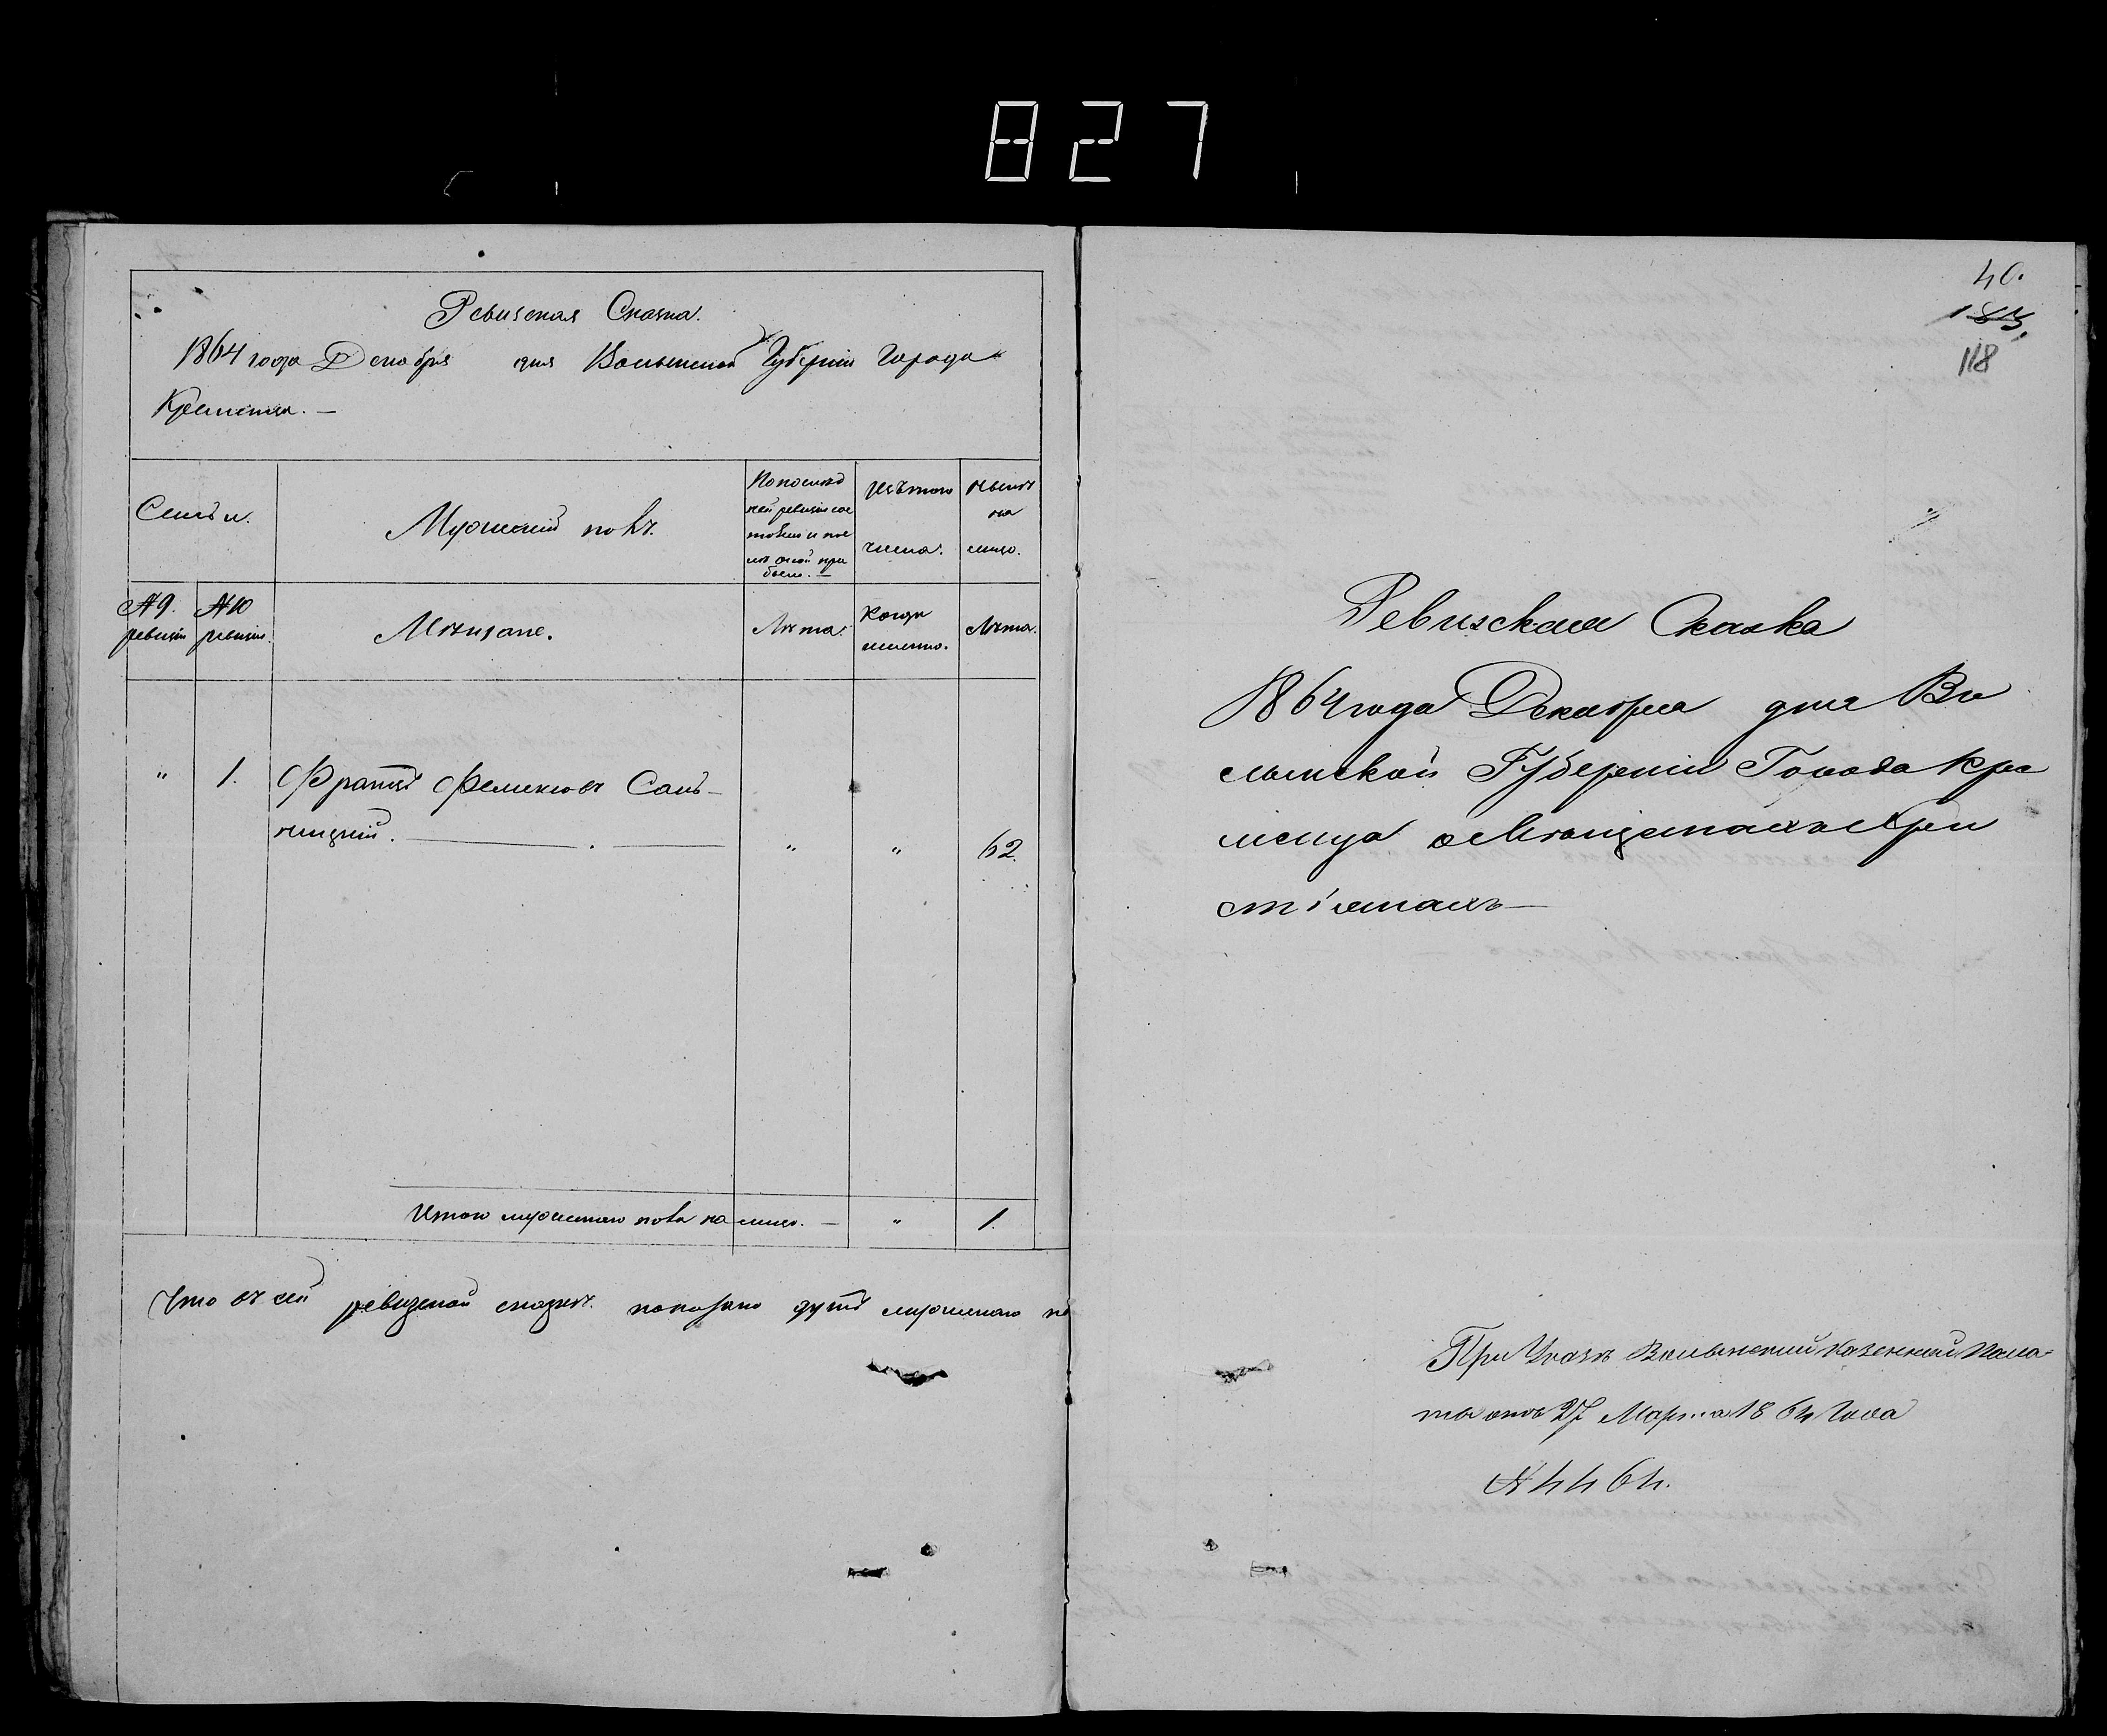 827
Ревизская Сказка.
1864 года Декабря дня Волынской Губерніи Города
Кременца. —
Семьи.
Мужескій полъ.
По послед
ней ревизіи сос
тояло и пос
лѣ оной при
было. —
Изъ того
числа.
Нынѣ
на
лицо.
№ 9.
ревизіи
№ 10
ревизіи.
Мѣщане.
Лѣта.
Когда
именно.
Лѣта.
" 1. Францъ Феликсовъ Сав-
ницкій. — . — " " 62.
Итого мужескаго пола на лицо. — " 1.
Что въ сей ревизской сказкѣ показано душъ мужескаго по
40.
183.
118
Ревизская Сказка
1864 года Декабря дня Во
лынской Губерніи Города Кре
менца о Мѣщанахъ Хри
стіянахъ —
При Указѣ Волынской Казенной Пала-
ты отъ 27 Марта 1864 Года
№ 4464.